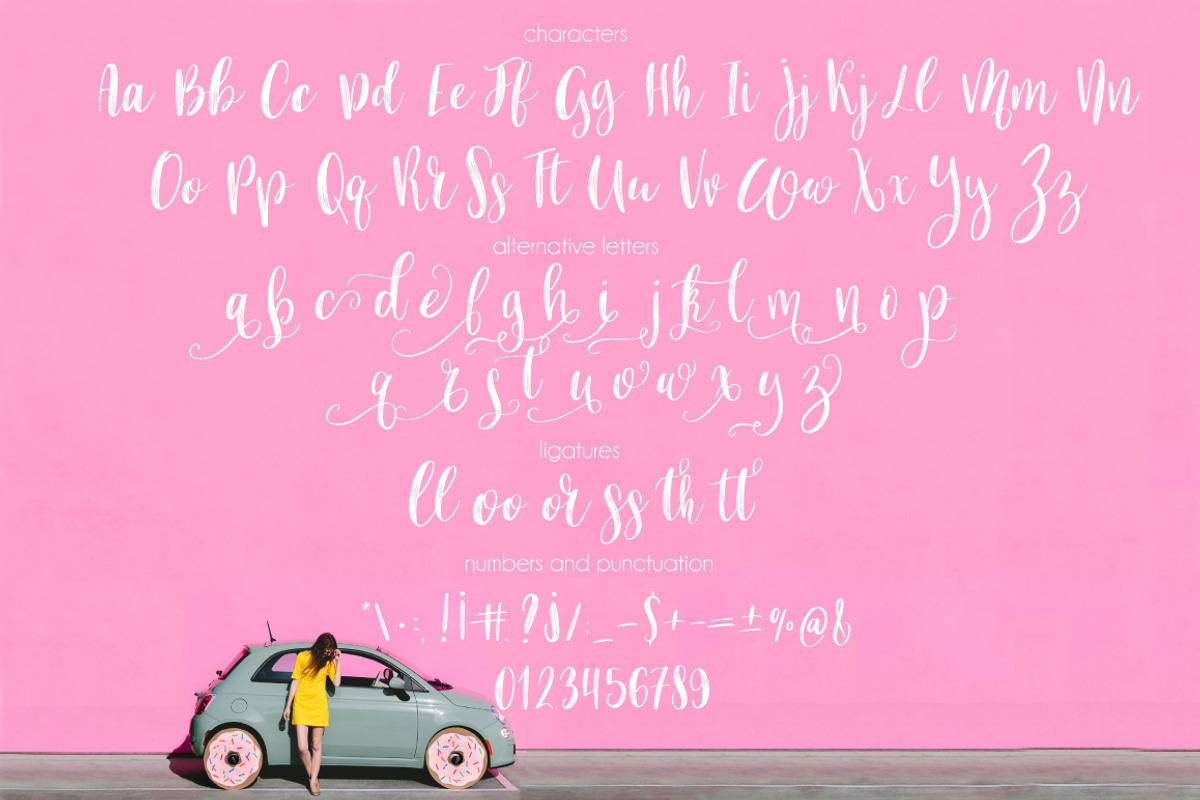 characters
Aa Bb Cc Dd Ee Ff Gg Hh Ii Jj Kj Ll Mm Nn
Oo Pp Qq Rr Ss Tt Uu Vv Ww Xx Yy Zz
alternative letters
a b c d e f g h i j k l m n o p
q r s t u v w x y z
ligatures
ll oo or ss th tt
numbers and punctuation
*\·:;!¡#?j/:_–$+-=±%@&
0123456789